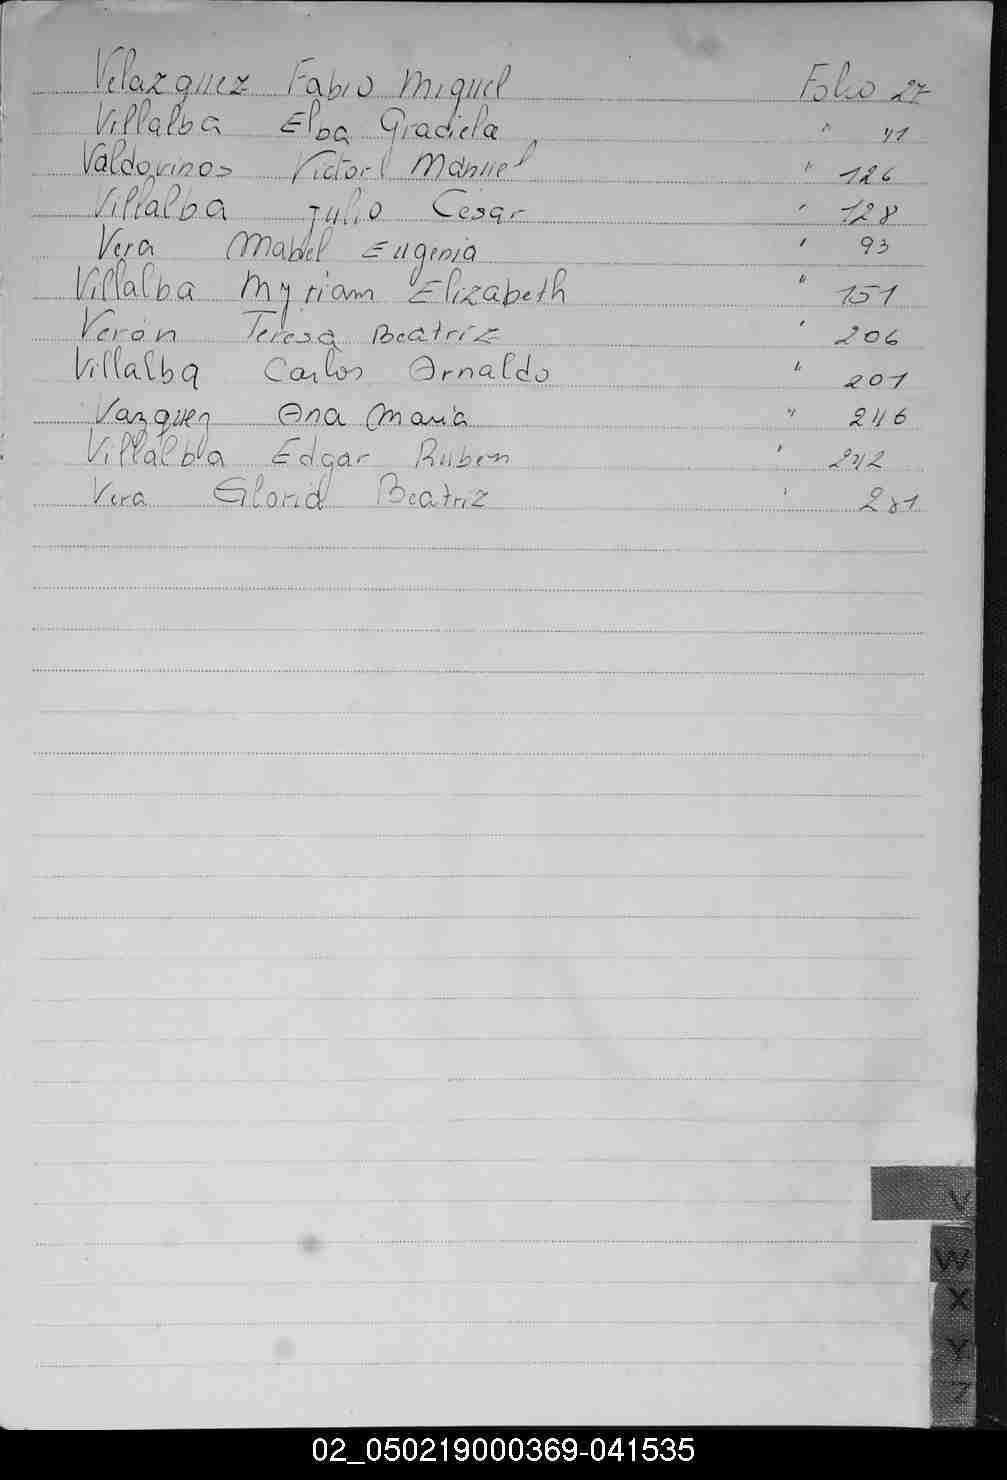 Velazquez Fabio Miguel Folio 27
Villalba Elba Graciela " 41
Valdovinos Victor Manuel " 126
Villalba Julio Cesar " 128
Vera Mabel Eugenia " 93
Villalba Myriam Elizabeth " 151
Verón Teresa Beatriz " 206
Villalba Carlos Arnaldo " 201
Vazquez Ana Maria " 246
Villalba Edgar Ruben " 242
Vera Gloria Beatriz " 281
V
W
X
Y
Z
02_050219000369-041535